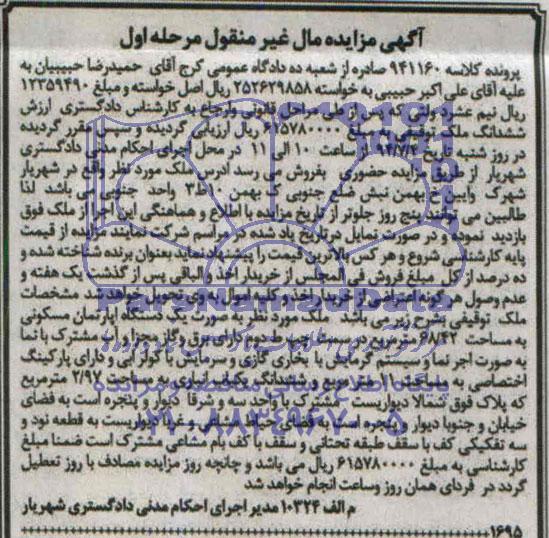 آگهی مزایده مال غیر منقول مرحله اول
پرونده کلاسه ۹۴۱۱۶۰ صادره از شعبه ده دادگاه عمومی کرج آقای حمیدرضا حبیبیان به
علیه آقای علی اکبر حبیبی به خواسته ۲۵۲۶۲۹۸۵۸ ریال اصل خواسته و مبلغ ۱۲۳۵۹۴۹۰
ریال نیم عشر دولتی که پس از طی مراحل قانونی وارجاع به کارشناس دادگستری ارزش
ششدانگ ملک توقیفی به مبلغ ۶۱۵۷۸۰۰۰۰ ریال ارزیابی گردیده و سپس مقرر گردیده
در روز شنبه تاریخ ساعت ۱۰ الی ۱۱ در محل اجرای احکام مدنی دادگستری
شهریار از طریق مزایده حضوری بفروش می رسد ادرس ملک مورد نظر واقع در شهریار
شهرک وایین خ بهمن نبش ضلع جنوبی ک بهمن ۱۰ ط۳ واحد جنوبی می باشد لذا
طالبین می توانند پنج روز جلوتر از تاریخ مزایده با اطلاع و هماهنگی این اجرا از ملک فوق
بازدید نموده و در صورت تمایل در تاریخ یاد شده در مراسم شرکت نمایند مزایده از قیمت
پایه کارشناسی شروع و هر کس بالاترین قیمت را پیشنهاد نماید بعنوان برنده شناخته شده و
ده درصد از کل مبلغ فروش فی المجلس از خریدار اخذ و الباقی پس از گذشت یک هفته و
عدم وصول هر گونه اعتراضی از خریدار اخذ و کلیه اموال به وی تحویل خواهد شد مشخصات
ملک توقیفی بشرح زیر می باشد ملک مورد نظر به صورت یک دستگاه آپارتمان مسکونی
به مساحت ۶۸/۴۲ مترمربع در سمت چپ طبقه دوم دارای برق و گاز مجزا و آب مشترک با نما
به صورت اجر نما و سیستم گرمایش با بخاری گازی و سرمایش با کولر آبی و دارای پارکینگ
اختصاصی به مساحت مترمربع و ششدانگ یکباب انباری به مساحت ۲/۹۷ مترمربع
که پلاک فوق شمالا دیواریست مشترک با واحد سه و شرقا دیوار و پنجره است به فضای
خیابان و جنوبا دیوار و پنجره است به فضای حیاط مشاعی و غربا دیواریست به قطعه نود و
سه تفکیکی کف با سقف طبقه تحتانی و سقف با کف بام مشاعی مشترک است ضمنا مبلغ
کارشناسی به مبلغ ۶۱۵۷۸۰۰۰۰ ریال می باشد و چنانچه روز مزایده مصادف با روز تعطیل
گردد در فردای همان روز وساعت انجام خواهد شد
م الف ۱۰۳۲۴ مدیر اجرای احکام مدنی دادگستری شهریار
۱۶۹۵
ParsNamadData
پایگاه اطلاع رسانی مناقصه و مزایده
۰۲۱-۸۸۳۴۹۶۷۰-۵